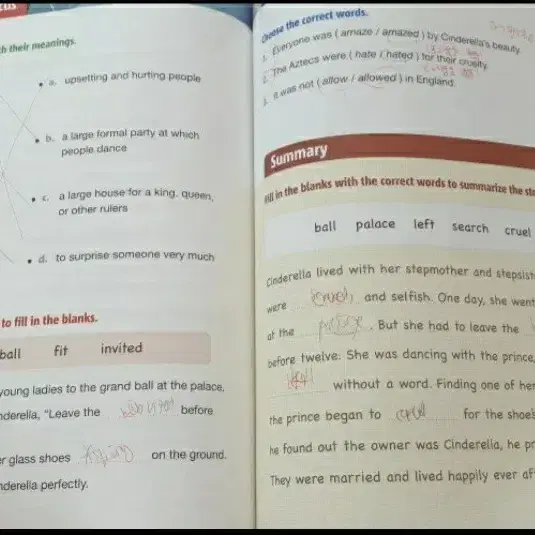 h their meanings.
a. upsetting and hurting people
b. a large formal party at which
people dance
c. a large house for a king, queen,
or other rulers
d. to surprise someone very much
to fill in the blanks.
ball fit invited
young ladies to the grand ball at the palace.
nderella, "Leave the before
er glass shoes on the ground.
nderella perfectly.
Choose the correct words.
1. Everyone was ( amaze / amazed ) by Cinderella's beauty.
2. The Aztecs were ( hate / hated ) for their cruelty.
3. It was not ( allow / allowed ) in England.
Summary
Fill in the blanks with the correct words to summarize the sto
ball palace left search cruel
Cinderella lived with her stepmother and stepsist
were and selfish. One day, she went
at the . But she had to leave the
before twelve. She was dancing with the prince,
left without a word. Finding one of her
the prince began to for the shoe's
he found out the owner was Cinderella, he pr
They were married and lived happily ever af